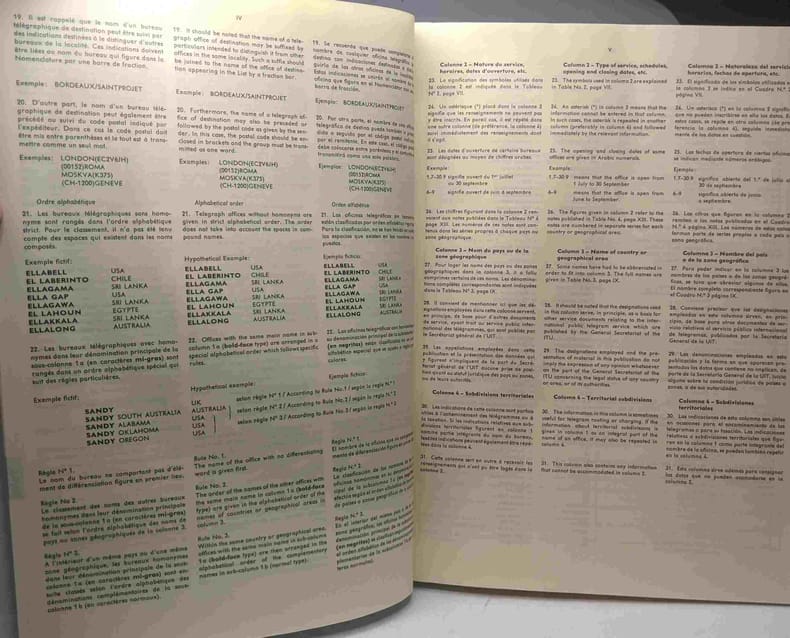 IV
19. Il est rappelé que le nom d'un bureau
télégraphique de destination peut être suivi par
des indications destinées à le distinguer d'autres
bureaux de la localité. Ces indications doivent
être liées au nom du bureau qui figure dans la
Nomenclature par une barre de fraction.
Exemple: BORDEAUX/SAINTPROJET
20. D'autre part, le nom d'un bureau télé-
graphique de destination peut également être
précédé ou suivi du code postal indiqué par
l'expéditeur. Dans ce cas le code postal doit
être mis entre parenthèses et le tout est à trans-
mettre comme un seul mot.
Exemples: LONDON(EC2V6JH)
(00152)ROMA
MOSKVA(K375)
(CH-1200)GENEVE
Ordre alphabétique
21. Les bureaux télégraphiques sans homo-
nyme sont rangés dans l'ordre alphabétique
strict. Pour le classement, il n'a pas été tenu
compte des espaces qui existent dans les noms
composés.
Exemple fictif:
ELLABELL USA
EL LABERINTO CHILE
ELLAGAMA SRI LANKA
ELLA GAP USA
ELLAGAWA SRI LANKA
EL LAHOUN EGYPTE
ELLAKKALA SRI LANKA
ELLALONG AUSTRALIA
22. Les bureaux télégraphiques avec homo-
nymes dans leur dénomination principale de la
sous-colonne 1a (en caractères mi-gras) sont
rangés dans un ordre alphabétique spécial qui
suit des règles particulières.
Exemple fictif:
SANDY UK
SANDY SOUTH AUSTRALIA AUSTRALIA
SANDY ALABAMA USA
SANDY OKLAHOMA USA
SANDY OREGON USA
Règle N° 1.
Le nom du bureau ne comportant pas d'élé-
ment de différenciation figure en premier lieu.
Règle No 2.
Le classement des noms des autres bureaux
homonymes dans leur dénomination principale
de la sous-colonne 1a (en caractères mi-gras)
se fait selon l'ordre alphabétique des noms de
pays ou zones géographiques de la colonne 3.
Règle N° 3.
A l'intérieur d'un même pays ou d'une même
zone géographique, les bureaux homonymes
dans leur dénomination principale de la sous-
colonne 1a (en caractères mi-gras) sont en-
suite classés selon l'ordre alphabétique des
dénominations complémentaires de la sous-
colonne 1b (en caractères normaux).
19. It should be noted that the name of a tele-
graph office of destination may be suffixed by
particulars intended to distinguish it from other
offices in the same locality. Such a suffix should
be joined to the name of the office of destina-
tion appearing in the List by a fraction bar.
Example: BORDEAUX/SAINTPROJET
20. Furthermore, the name of a telegraph of-
fice of destination may also be preceded or
followed by the postal code as given by the sen-
der. In this case, the postal code should be en-
closed in brackets and the group must be trans-
mitted as one word.
Examples: LONDON(EC2V6JH)
(00152)ROMA
MOSKVA(K375)
(CH-1200)GENEVE
Alphabetical order
21. Telegraph offices without homonyms are
given in strict alphabetical order. The order
does not take into account the spaces in com-
pound names.
Hypothetical Example:
ELLABELL USA
EL LABERINTO CHILE
ELLAGAMA SRI LANKA
ELLA GAP USA
ELLAGAWA SRI LANKA
EL LAHOUN EGYPTE
ELLAKKALA SRI LANKA
ELLALONG AUSTRALIA
22. Offices with the same main name in sub-
column 1a (bold-face type) are arranged in a
special alphabetical order which follows specific
rules.
Hypothetical example:
selon règle N° 1 / According to Rule No. 1 / según la regla N.° 1
selon règle N° 2 / According to Rule No. 2 / según la regla N.° 2
selon règle N° 3 / According to Rule No. 3 / según la regla N.° 3
Rule No. 1.
The name of the office with no differentiating
word is given first.
Rule No. 2.
The order of the names of the other offices with
the same main name in column 1a (bold-face
type) are given in the alphabetical order of the
names of countries or geographical areas in
column 3.
Rule No. 3.
Within the same country or geographical area,
offices with the same main name in sub-column
1a (bold-face type) are then arranged in the
alphabetical order of the complementary
names in sub-column 1b (normal type).
19. Se recuerda que puede completarse el
nombre de cualquier oficina telegráfica de
destino con indicaciones destinadas a
de las otras oficinas de la localidad.
Estas indicaciones se unirán al nombre de la
oficina que figura en el Nomenclátor por una
barra de fracción.
Ejemplo: BORDEAUX/SAINTPROJET
20. Por otra parte, el nombre de una oficina
telegráfica de destino puede también ir
dido o seguido por el código postal indicado
por el remitente. En este caso, el código postal
debe colocarse entre paréntesis y el conjunto
transmitirá como una sola palabra.
Ejemplos: LONDON(EC2V6JH)
(00152)ROMA
MOSKVA(K375)
(CH-1200)GENEVE
Orden alfabético
21. Las oficinas telegráficas sin homónimos
están clasificadas por orden alfabético riguroso.
Para la clasificación, no se han tenido en cuenta
los espacios que existen en los nombres com-
puestos.
Ejemplo ficticio:
ELLABELL USA
EL LABERINTO CHILE
ELLAGAMA SRI LANKA
ELLA GAP USA
ELLAGAWA SRI LANKA
EL LAHOUN EGYPTE
ELLAKKALA SRI LANKA
ELLALONG AUSTRALIA
22. Las oficinas telegráficas con homónimos en
su denominación principal de la subcolumna 1a
(en negritas) están clasificadas en un orden
alfabético especial que se ajusta a reglas parti-
culares.
Ejemplo ficticio:
Regla N.° 1.
El nombre de la oficina sin elemento
de diferenciación figura en primer lugar.
Regla N.° 2.
La clasificación de los nombres de las
oficinas homónimas en su denominación princi-
pal de la subcolumna 1a (en negritas) se
efectúa según el orden alfabético de los nombres
de países o zonas geográficas de la columna 3.
Regla N.° 3.
En el interior del mismo país o de la misma
zona geográfica, las oficinas homónimas en su
denominación principal de la subcolumna 1a
(en negritas) se clasifican a continuación según
el orden alfabético de las denominaciones com-
plementarias de la subcolumna 1b (en carac-
teres normales).
V
Colonne 2 – Nature du service,
horaires, dates d'ouverture, etc.
23. La signification des symboles utilisés dans
la colonne 2 est indiquée dans le Tableau
N° 2, page VII.
24. Un astérisque (*) placé dans la colonne 2
signifie que les renseignements ne peuvent pas
y être inscrits. En pareil cas, il est répété dans
une autre colonne (de préférence, la colonne 4)
suivi immédiatement des renseignements dont
il s'agit.
25. Les dates d'ouverture de certains bureaux
sont désignées au moyen de chiffres arabes.
Exemple
1.7-30.9 signifie ouvert du 1er juillet
au 30 septembre
6-9 signifie ouvert de juin à septembre
26. Les chiffres figurant dans la colonne 2 ren-
voient aux notes publiées dans le Tableau N° 4
page XIII. Les numéros de ces notes sont con-
tenus dans des séries propres à chaque pays ou
zone géographique.
Colonne 3 – Nom du pays ou de la
zone géographique
27. Pour loger les noms des pays ou des zones
géographiques dans la colonne 3, il a fallu
comprimer certains de ces noms. Les dénomina-
tions complètes correspondantes sont indiquées
dans le Tableau N° 3, page IX.
28. Il convient de mentionner ici que les dé-
signations employées dans cette colonne servent,
en principe, de base pour d'autres documents
de service, ayant trait au service public inter-
national des télégrammes, qui sont publiés par
le Secrétariat général de l'UIT.
29. Les appellations employées dans cette
publication et la présentation des données qui
y figurent n'impliquent de la part du Secré-
tariat général de l'UIT aucune prise de posi-
tion quant au statut juridique des pays ou zones,
ou de leurs autorités.
Colonne 4 – Subdivisions territoriales
30. Les indications de cette colonne sont parfois
utiles à l'acheminement des télégrammes ou à
la taxation. Si les indications relatives aux sub-
divisions territoriales figurent en colonne 1
comme partie intégrante du nom du bureau,
lesdites indications peuvent également être répé-
tées dans la colonne 4.
31. Cette colonne sert en outre à recevoir les
renseignements qui n'ont pu être logés dans la
colonne 2.
Column 2 – Type of service, schedules,
opening and closing dates, etc.
23. The symbols used in column 2 are explained
in Table No. 2, page VII.
24. An asterisk (*) in column 2 means that the
information cannot be entered in that column.
In such cases, the asterisk is repeated in another
column (preferably in column 4) and followed
immediately by the relevant information.
25. The opening and closing dates of some
offices are given in Arabic numerals.
Example
1.7-30.9 means that the office is open from
1 July to 30 September
6-9 means that the office is open from
June to September.
26. The figures given in column 2 refer to the
notes published in Table No. 4, page XIII. These
notes are numbered in separate series for each
country or geographical area.
Column 3 – Name of country or
geographical area
27. Some names have had to be abbreviated in
order to fit into column 3. The full names are
given in Table No. 3, page IX.
28. It should be noted that the designations used
in this column serve, in principle, as a basis for
other service documents relating to the inter-
national public telegram service which are
published by the General Secretariat of the
ITU.
29. The designations employed and the pre-
sentation of material in this publication do not
imply the expression of any opinion whatsoever
on the part of the General Secretariat of the
ITU concerning the legal status of any country
or area, or of its authorities.
Column 4 – Territorial subdivisions
30. The information in this column is sometimes
useful for telegram routing or charging. If the
information about territorial subdivisions is
given in column 1 as an integral part of the
name of an office, it may also be repeated in
column 4.
31. This column also contains any information
that cannot be accommodated in column 2.
Columna 2 – Naturaleza del servicio,
horarios, fechas de apertura, etc.
23. El significado de los símbolos utilizados en
la columna 2 se indica en el Cuadro N.° 2,
página VII.
24. Un asterisco (*) en la columna 2 significa
que no pueden inscribirse en ella los datos. En
este caso, se repite en otra columna (de pre-
ferencia la columna 4), seguido inmediata-
mente de los datos en cuestión.
25. Las fechas de apertura de ciertas oficinas
se indican mediante números arábigos.
Ejemplo
1.7-30.9 significa abierta del 1.° de julio al
30 de septiembre
6-9 significa abierta de junio
a septiembre.
26. Las cifras que figuran en la columna 2
remiten a las notas publicadas en el Cuadro
N.° 4 página XIII. Los números de estas notas
forman parte de series propias a cada país o
zona geográfica.
Columna 3 – Nombre del país
o de la zona geográfica
27. Para poder indicar en la columna 3 los
nombres de los países o de las zonas geográ-
ficas, se tuvo que abreviar algunos de ellos.
El nombre completo correspondiente figura en
el Cuadro N.° 3 página IX.
28. Conviene precisar que las designaciones
empleadas en esta columna sirven, en prin-
cipio, de base para otros documentos de ser-
vicio relativos al servicio público internacional
de telegramas, publicados por la Secretaría
General de la UIT.
29. Las denominaciones empleadas en esta
publicación y la forma en que aparecen pre-
sentados los datos que contiene no implican, de
parte de la Secretaría General de la UIT, juicio
alguno sobre la condición jurídica de países o
zonas, o de sus autoridades.
Columna 4 – Subdivisiones
territoriales
30. Las indicaciones de esta columna son útiles
en ocasiones para el encaminamiento de los
telegramas o para su tasación. Si las indicaciones
relativas a subdivisiones territoriales
figuran en la columna 1 como parte integrante del
nombre de la oficina, se pueden también repetir
en la columna 4.
31. Esta columna sirve además para consignar
los datos que no puedan exponerse en la
columna 2.